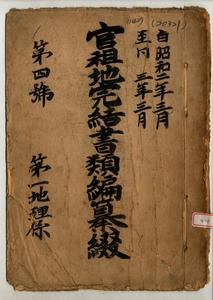 (2032)
自昭和二年三月
至同 三年三月
官租地完結書類編纂綴
第四號
第一地理係